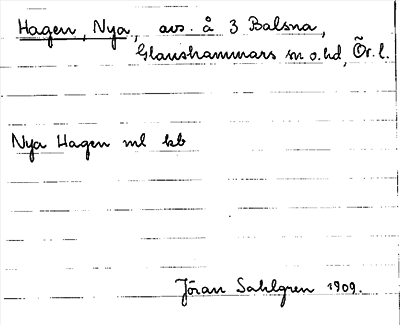 Hagen, Nya, avs. å 3 Balsna,
Glanshammars sn o. hd, Ör. l.
Nya Hagen ml kb
Jöran Sahlgren 1909.